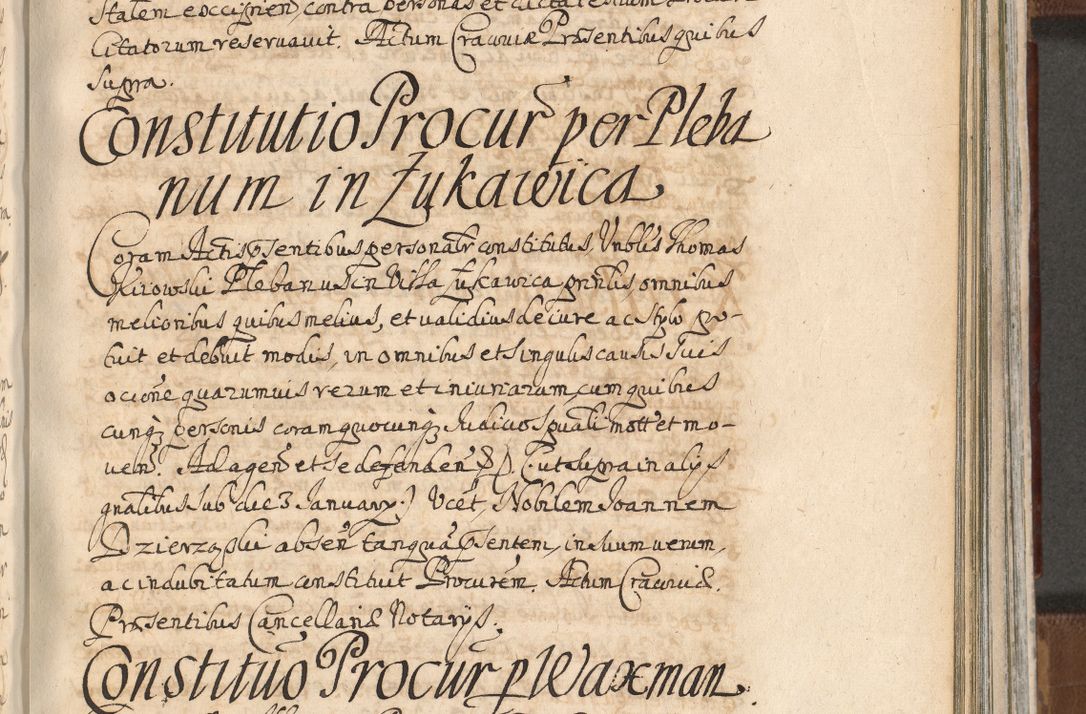 Citatorum reservavit. Actum Cracoviæ Præsentibus quibus
supra.
Constitutio Procur̃ per Pleba
num in Żukawica
Coram Actis p̃sentibus personalr̃ constitutus, Vnblis Thomas
Kirowski Plebanus in Villa Żukawica, gnrlis, omnibus
melioribus quibus melius, et validius de iure ac stylo po-
tuit et debuit modis, in omnibus et singulis causis suis
ocione quarumvis rerum et iniuriarum, cum quibus
cunqȝ personis coram quocunqȝ Iudicio Spuali mott̃ et mo-
ven̄. Ad agen̄ et se defenden̄ (: ut supra in alijs
gnalibus sub die 3 January:) Vcet, Nobilem Ioannem
Dzierząski absen̄ tanquã p̃sentem, in suum verum,
ac indubitatum constituit Procurẽm. Actum Cracoviæ.
Præsentibus Cancellariæ Notarijs.
Constituo Procur̃ p Waxman.